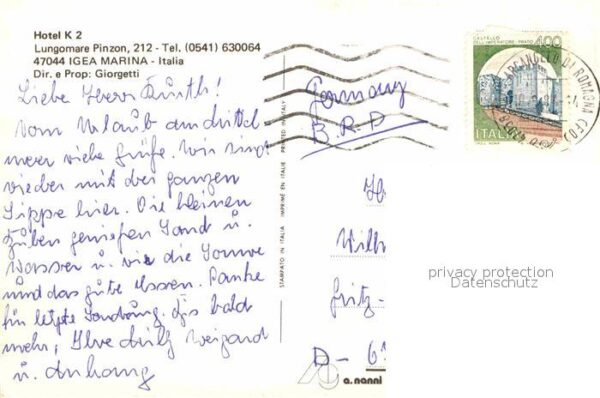 Hotel K 2
Lungomare Pinzon, 212 - Tel. (0541) 630064
47044 IGEA MARINA - Italia
Dir. e Prop: Giorgetti
Liebe Herr
Vom Urlaub am Mittel
meer viele Grüße. Wir sind
wieder mit der ganzen
Sippe hier. Die kleinen
genießen Sand u.
Wasser u. wir die Sonne
und das gute Essen. Danke
für letzte Sendung. Bis bald
mehr, Ihre Weigand
u. Anhang
PRINTED IN ITALY
IMPRIMÉ EN ITALIE
STAMPATO IN ITALIA
a. nanni
Germany
B.R.D
Wilh
Fritz-
D - 6
CASTELLO
DELL'IMPERATORE - PRATO
400
ITALIA
ARCANGELO DI ROMAGNA (FO)
privacy protection
Datenschutz